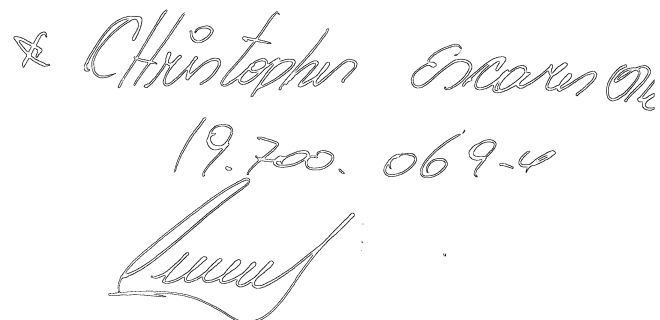 Christopher Escares
19.700.069-4